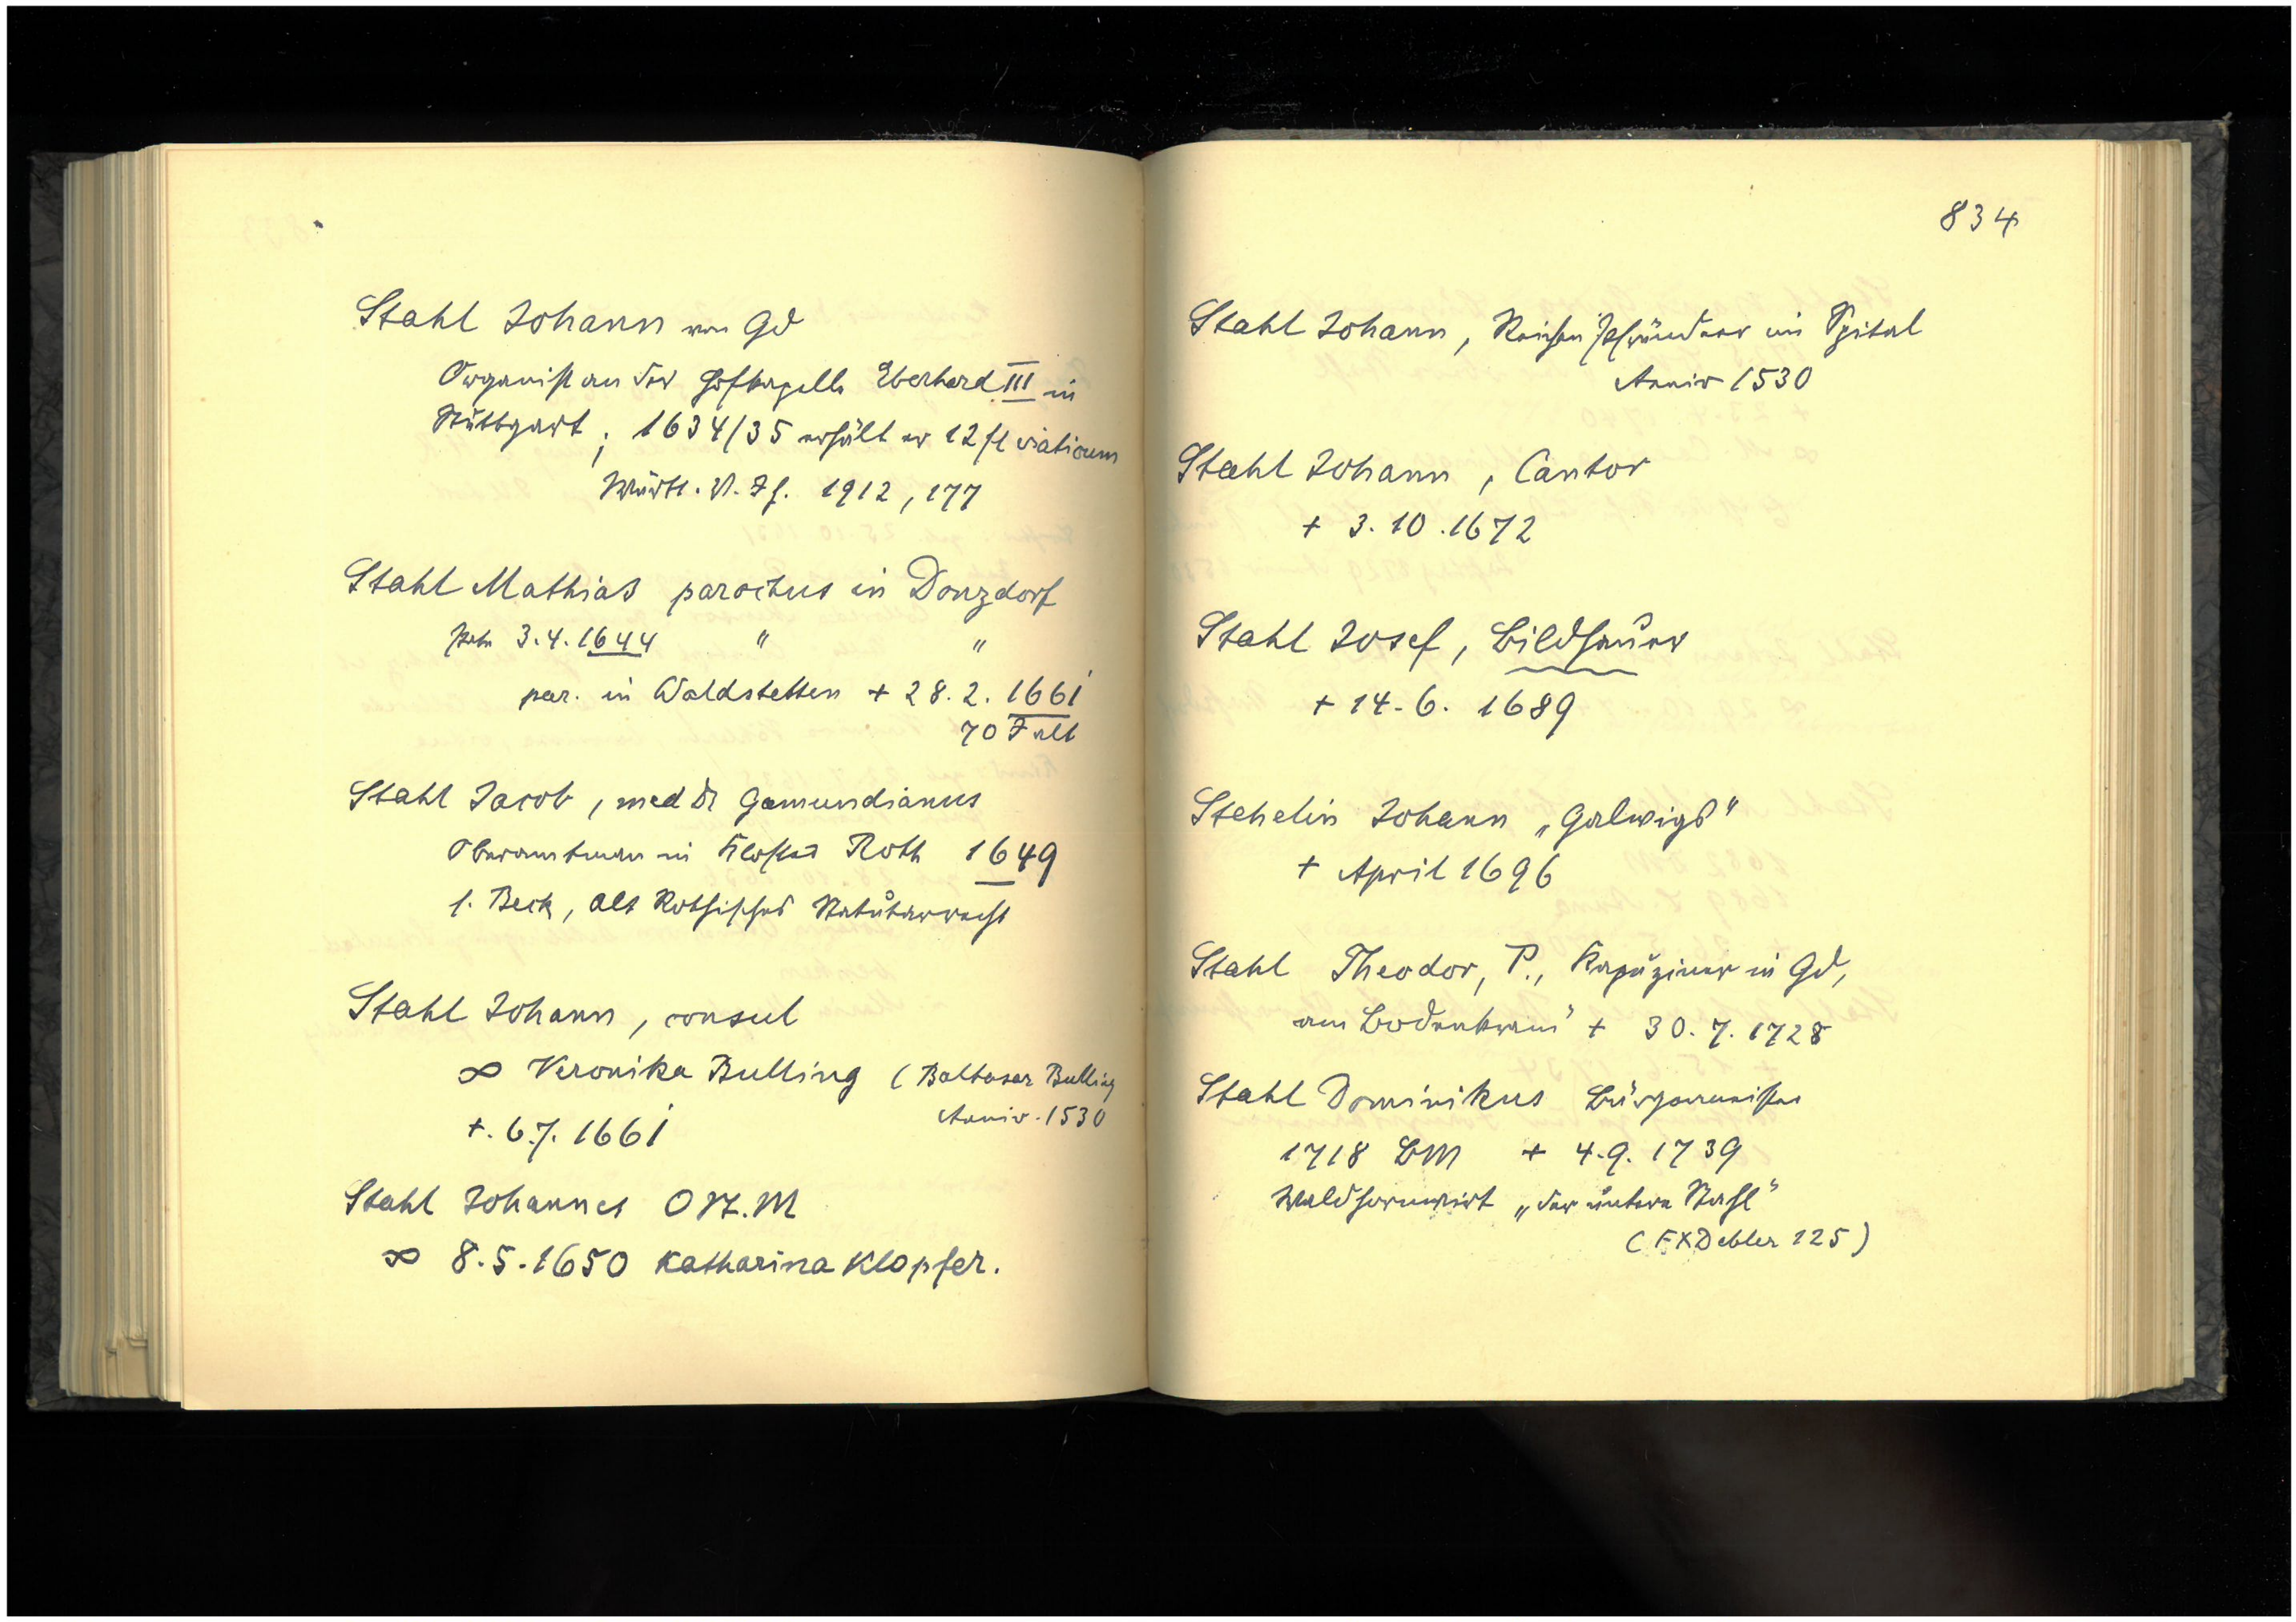 Stahl Johann von Gd
Organist an der Hofkapelle Eberhard III in
Stuttgart; 1634/35 erhält er 12 fl viaticum
Württ. V. Jh. 1912, 177
Stahl Mathias parochus in Donzdorf
3.4.1644 " "
par. in Waldstetten + 28.2.1661
70 J alt
Stahl Jacob, med Dr Gamundianus
Oberamtman in Kloster Roth 1649
s. Beck, Alt Rothisches Statutarrecht
Stahl Johann, consul
∞ Veronika Bulling (Baltasar Bulling
Anniv. 1530
+. 6.7. 1661
Stahl Johannes
∞ 8.5.1650 Katharina Klopfer.
834
Stahl Johann, Reichen Pfründner im Spital
Anniv 1530
Stahl Johann, Cantor
+ 3.10.1672
Stahl Josef, Bildhauer
+ 14.6. 1689
Stehelin Johann „Galwigs"
+ April 1696
Stahl Theodor, P., Kapuziner in Gd,
am + 30.7.1728
Stahl Dominikus Bürgermeister
1718 BM + 4.9. 1739
Waldhornwirt „der untere Stahl"
(FXDebler 125)